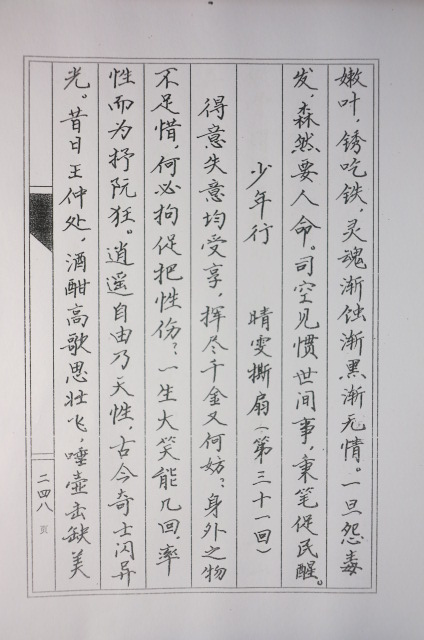 嫩叶,锈吃铁,灵魂渐蚀渐黑渐无情。一旦怨毒
发,森然要人命。司空见惯世间事,秉笔促民醒。
少年行　晴雯撕扇(第三十一回)
得意失意均受享,挥尽千金又何妨?身外之物
不足惜,何必拘促把性伤?一生大笑能几回,率
性而为抒阮狂。逍遥自由乃天性,古今奇士闪异
光。昔日王仲处,酒酣高歌思壮飞,唾壶击缺美
二四八页